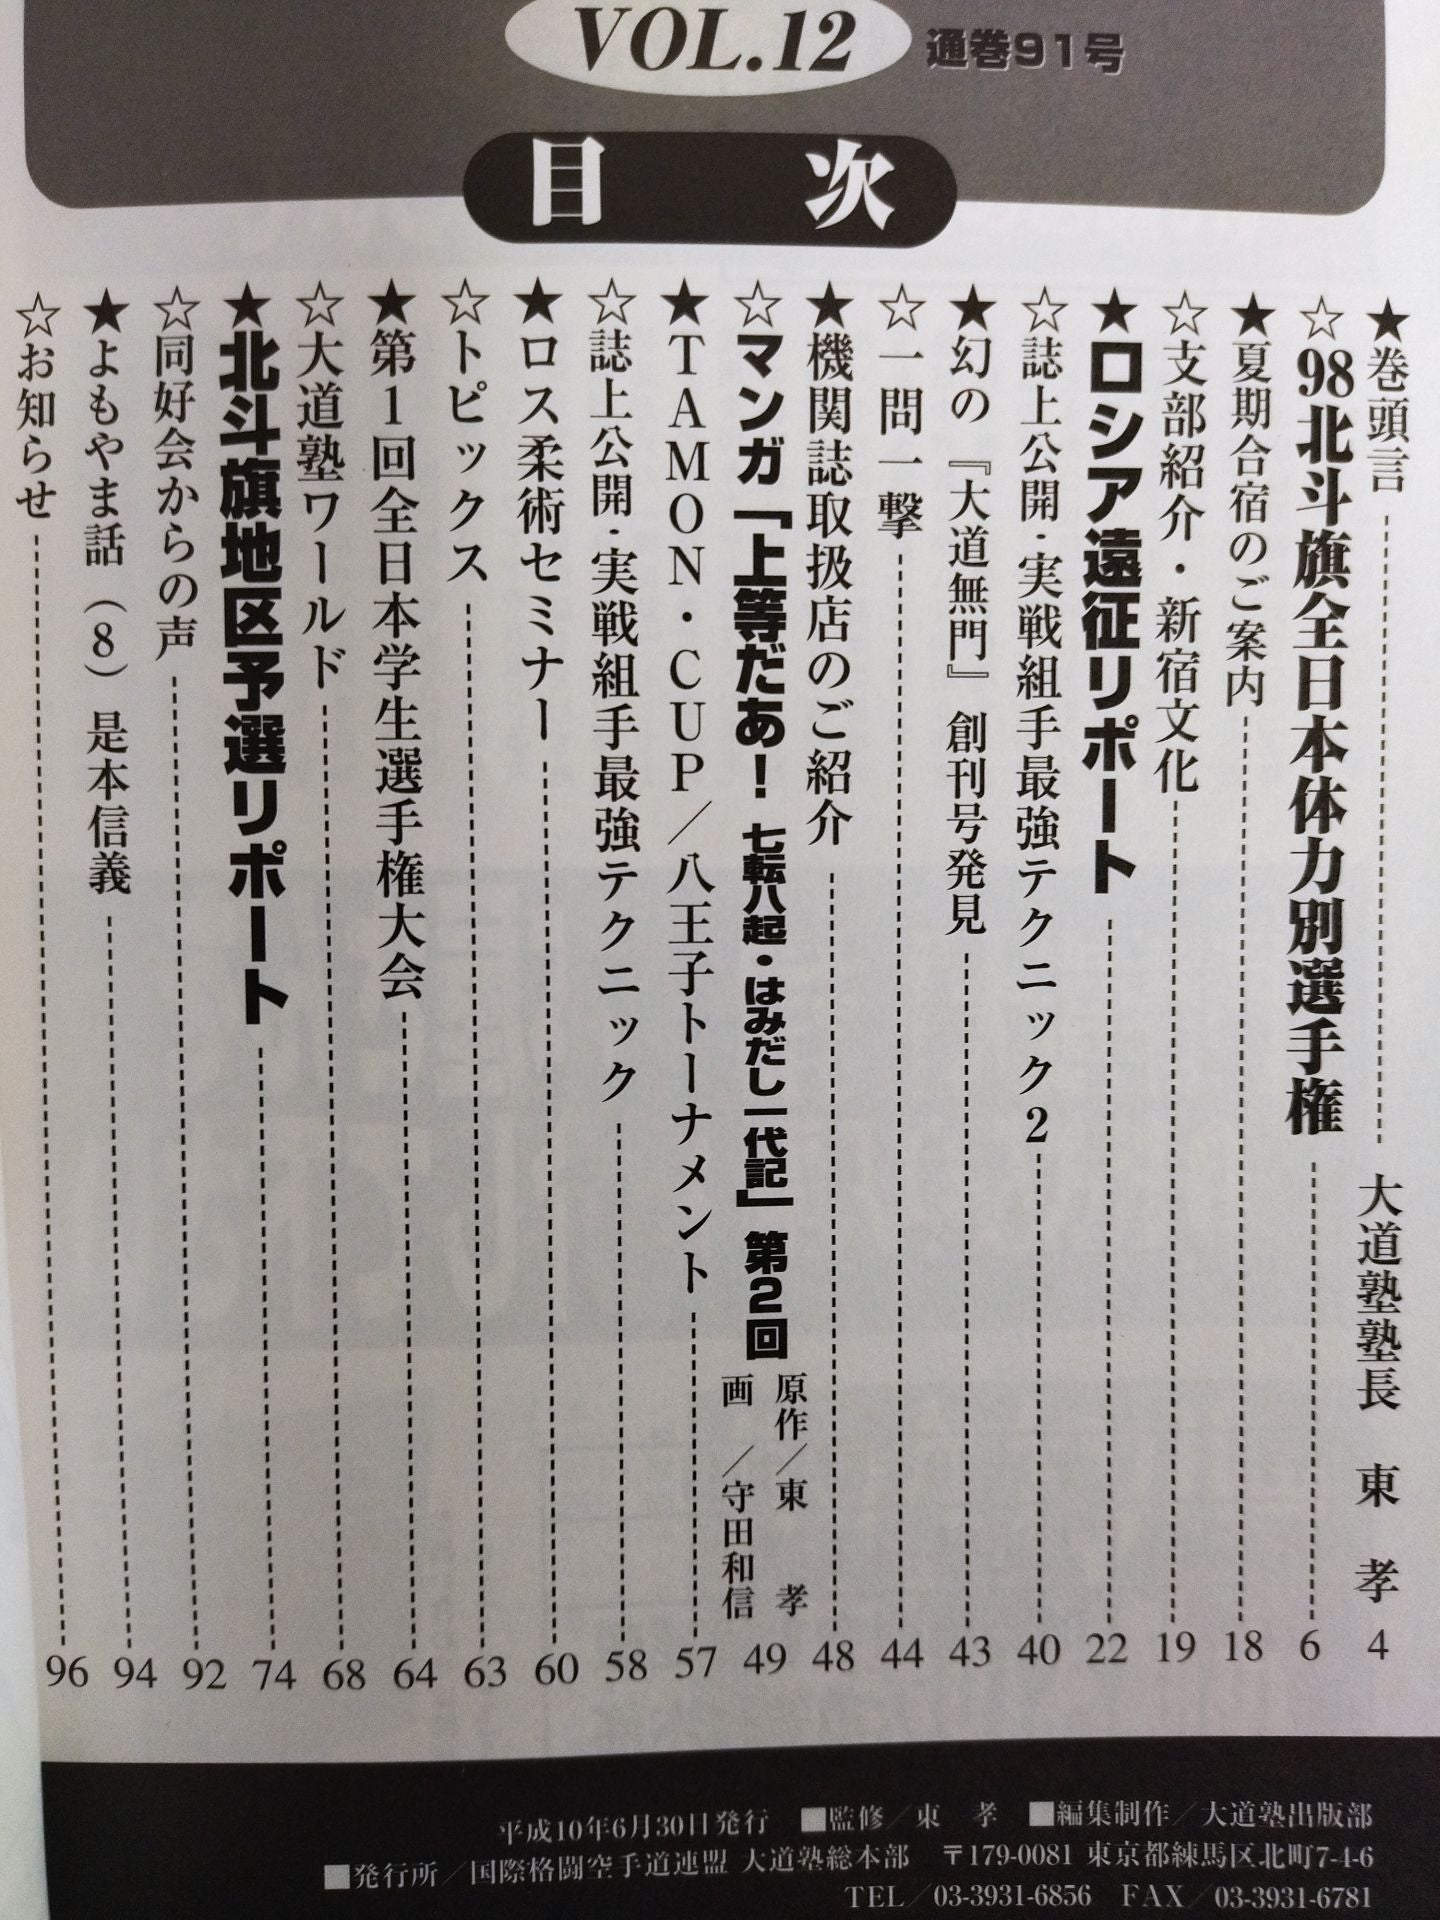 VOL.12
通巻91号
目次
★巻頭言 大道塾塾長 東 孝 4
☆98北斗旗全日本体力別選手権 6
★夏期合宿のご案内 18
☆支部紹介・新宿文化 19
★ロシア遠征リポート 22
☆誌上公開・実戦組手最強テクニック2 40
★幻の『大道無門』創刊号発見 43
☆一問一撃 44
★機関誌取扱店のご紹介 48
☆マンガ「上等だあ！ 七転八起・はみだし一代記」第2回 原作／東 孝 画／守田和信 49
★TAMON・CUP／八王子トーナメント 57
☆誌上公開・実戦組手最強テクニック 58
★ロス柔術セミナー 60
☆トピックス 63
★第1回全日本学生選手権大会 64
☆大道塾ワールド 68
★北斗旗地区予選リポート 74
☆同好会からの声 92
★よもやま話（8）是本信義 94
☆お知らせ 96
平成10年6月30日発行 ■監修／東 孝 ■編集制作／大道塾出版部
■発行所／国際格闘空手道連盟 大道塾総本部 〒179-0081 東京都練馬区北町7-4-6
TEL／03-3931-6856 FAX／03-3931-6781